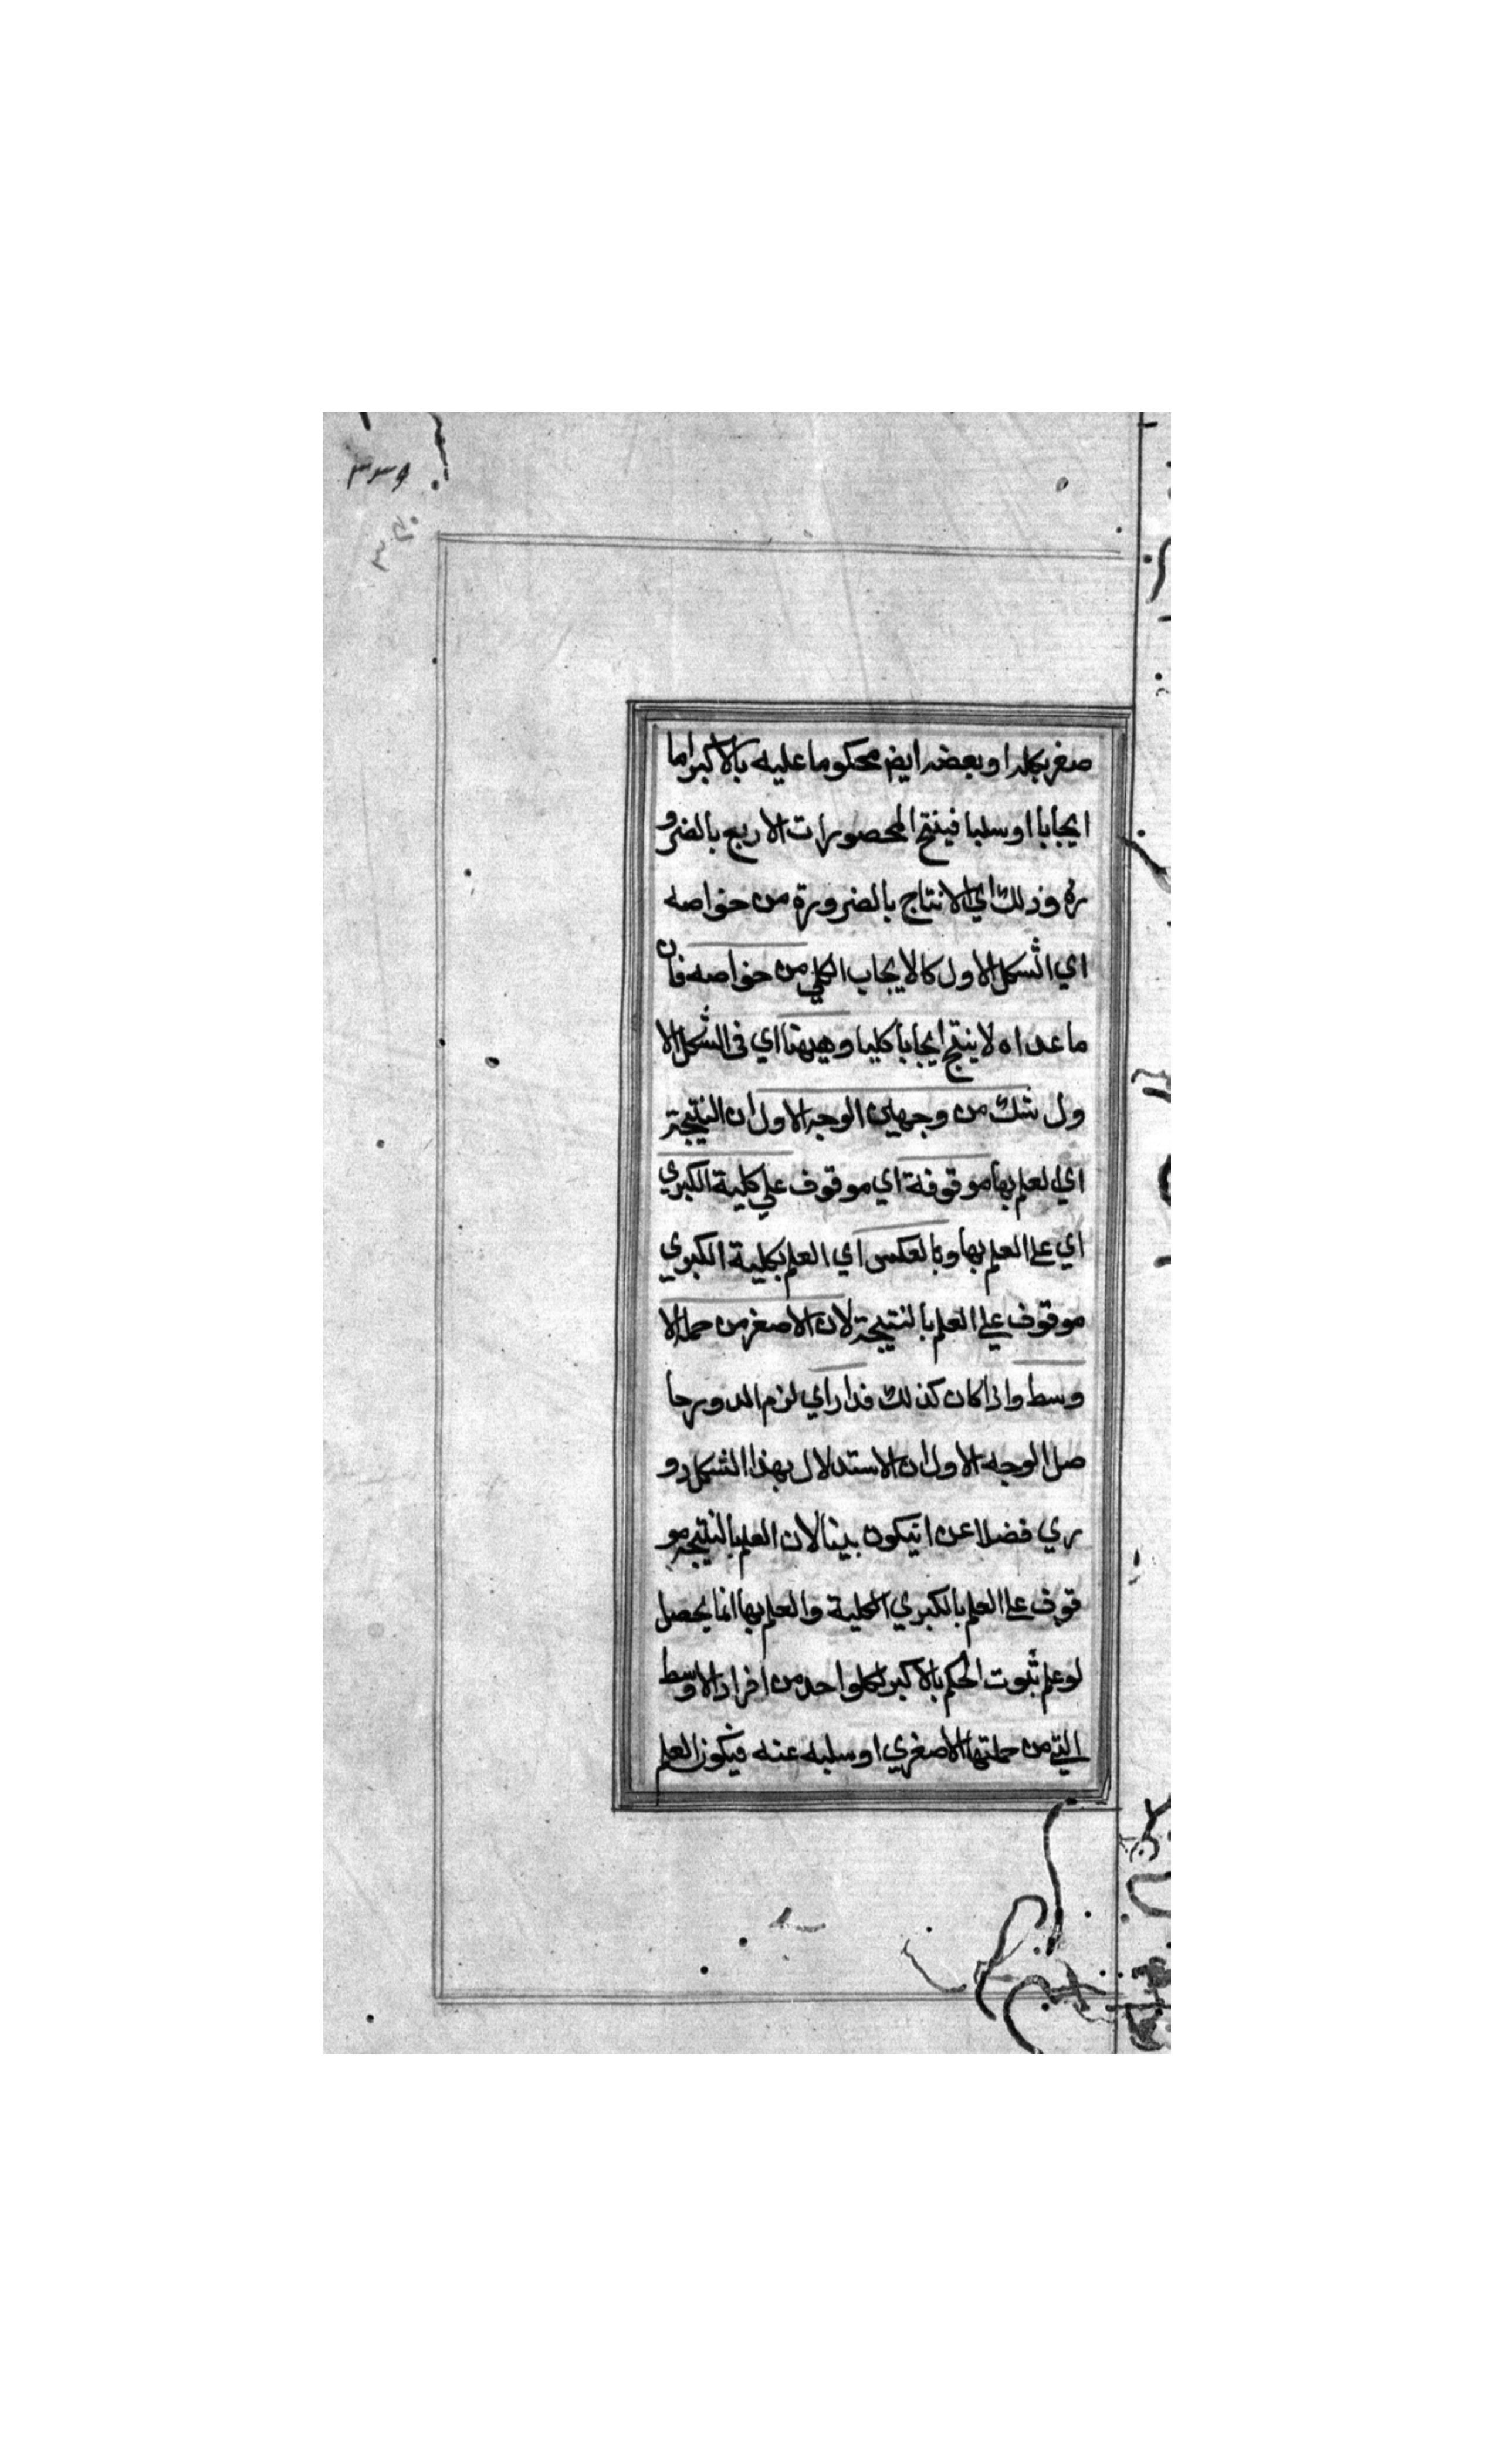 ٣٣٩
صغر بكله او بعضه ايض محكوما عليه بالاكبر اما
ايجابا او سلبا فينتج المحصورات الاربع بالضرو
رة وذلك اي الانتاج بالضرورة من خواصه
اي الشكل الاول كالايجاب الكلي من خواصه فان
ما عداه لا ينتج ايجابا كليا وههنا اي في الشكل الا
ول شك من وجهين الوجه الاول ان النتيجة
اي العلم بها موقوفة اي موقوف علي كلية الكبري
اي علي العلم بها وبالعكس اي العلم بكلية الكبري
موقوف علي العلم بالنتيجة لان الاصغر من جملة الا
وسط واذا كان كذلك فدار اي لزم الدور حا
صل الوجه الاول ان الاستدلال بهذا الشكل دو
ري فضلا عن انيكون بينا لان العلم بالنتيجة مو
قوف علي العلم بالكبري الكلية والعلم بها انما يحصل
لو علم ثبوت الحكم بالاكبر لكل واحد من افراد الاوسط
التي من جملتها الاصغري او سلبه عنه فيكون العلم